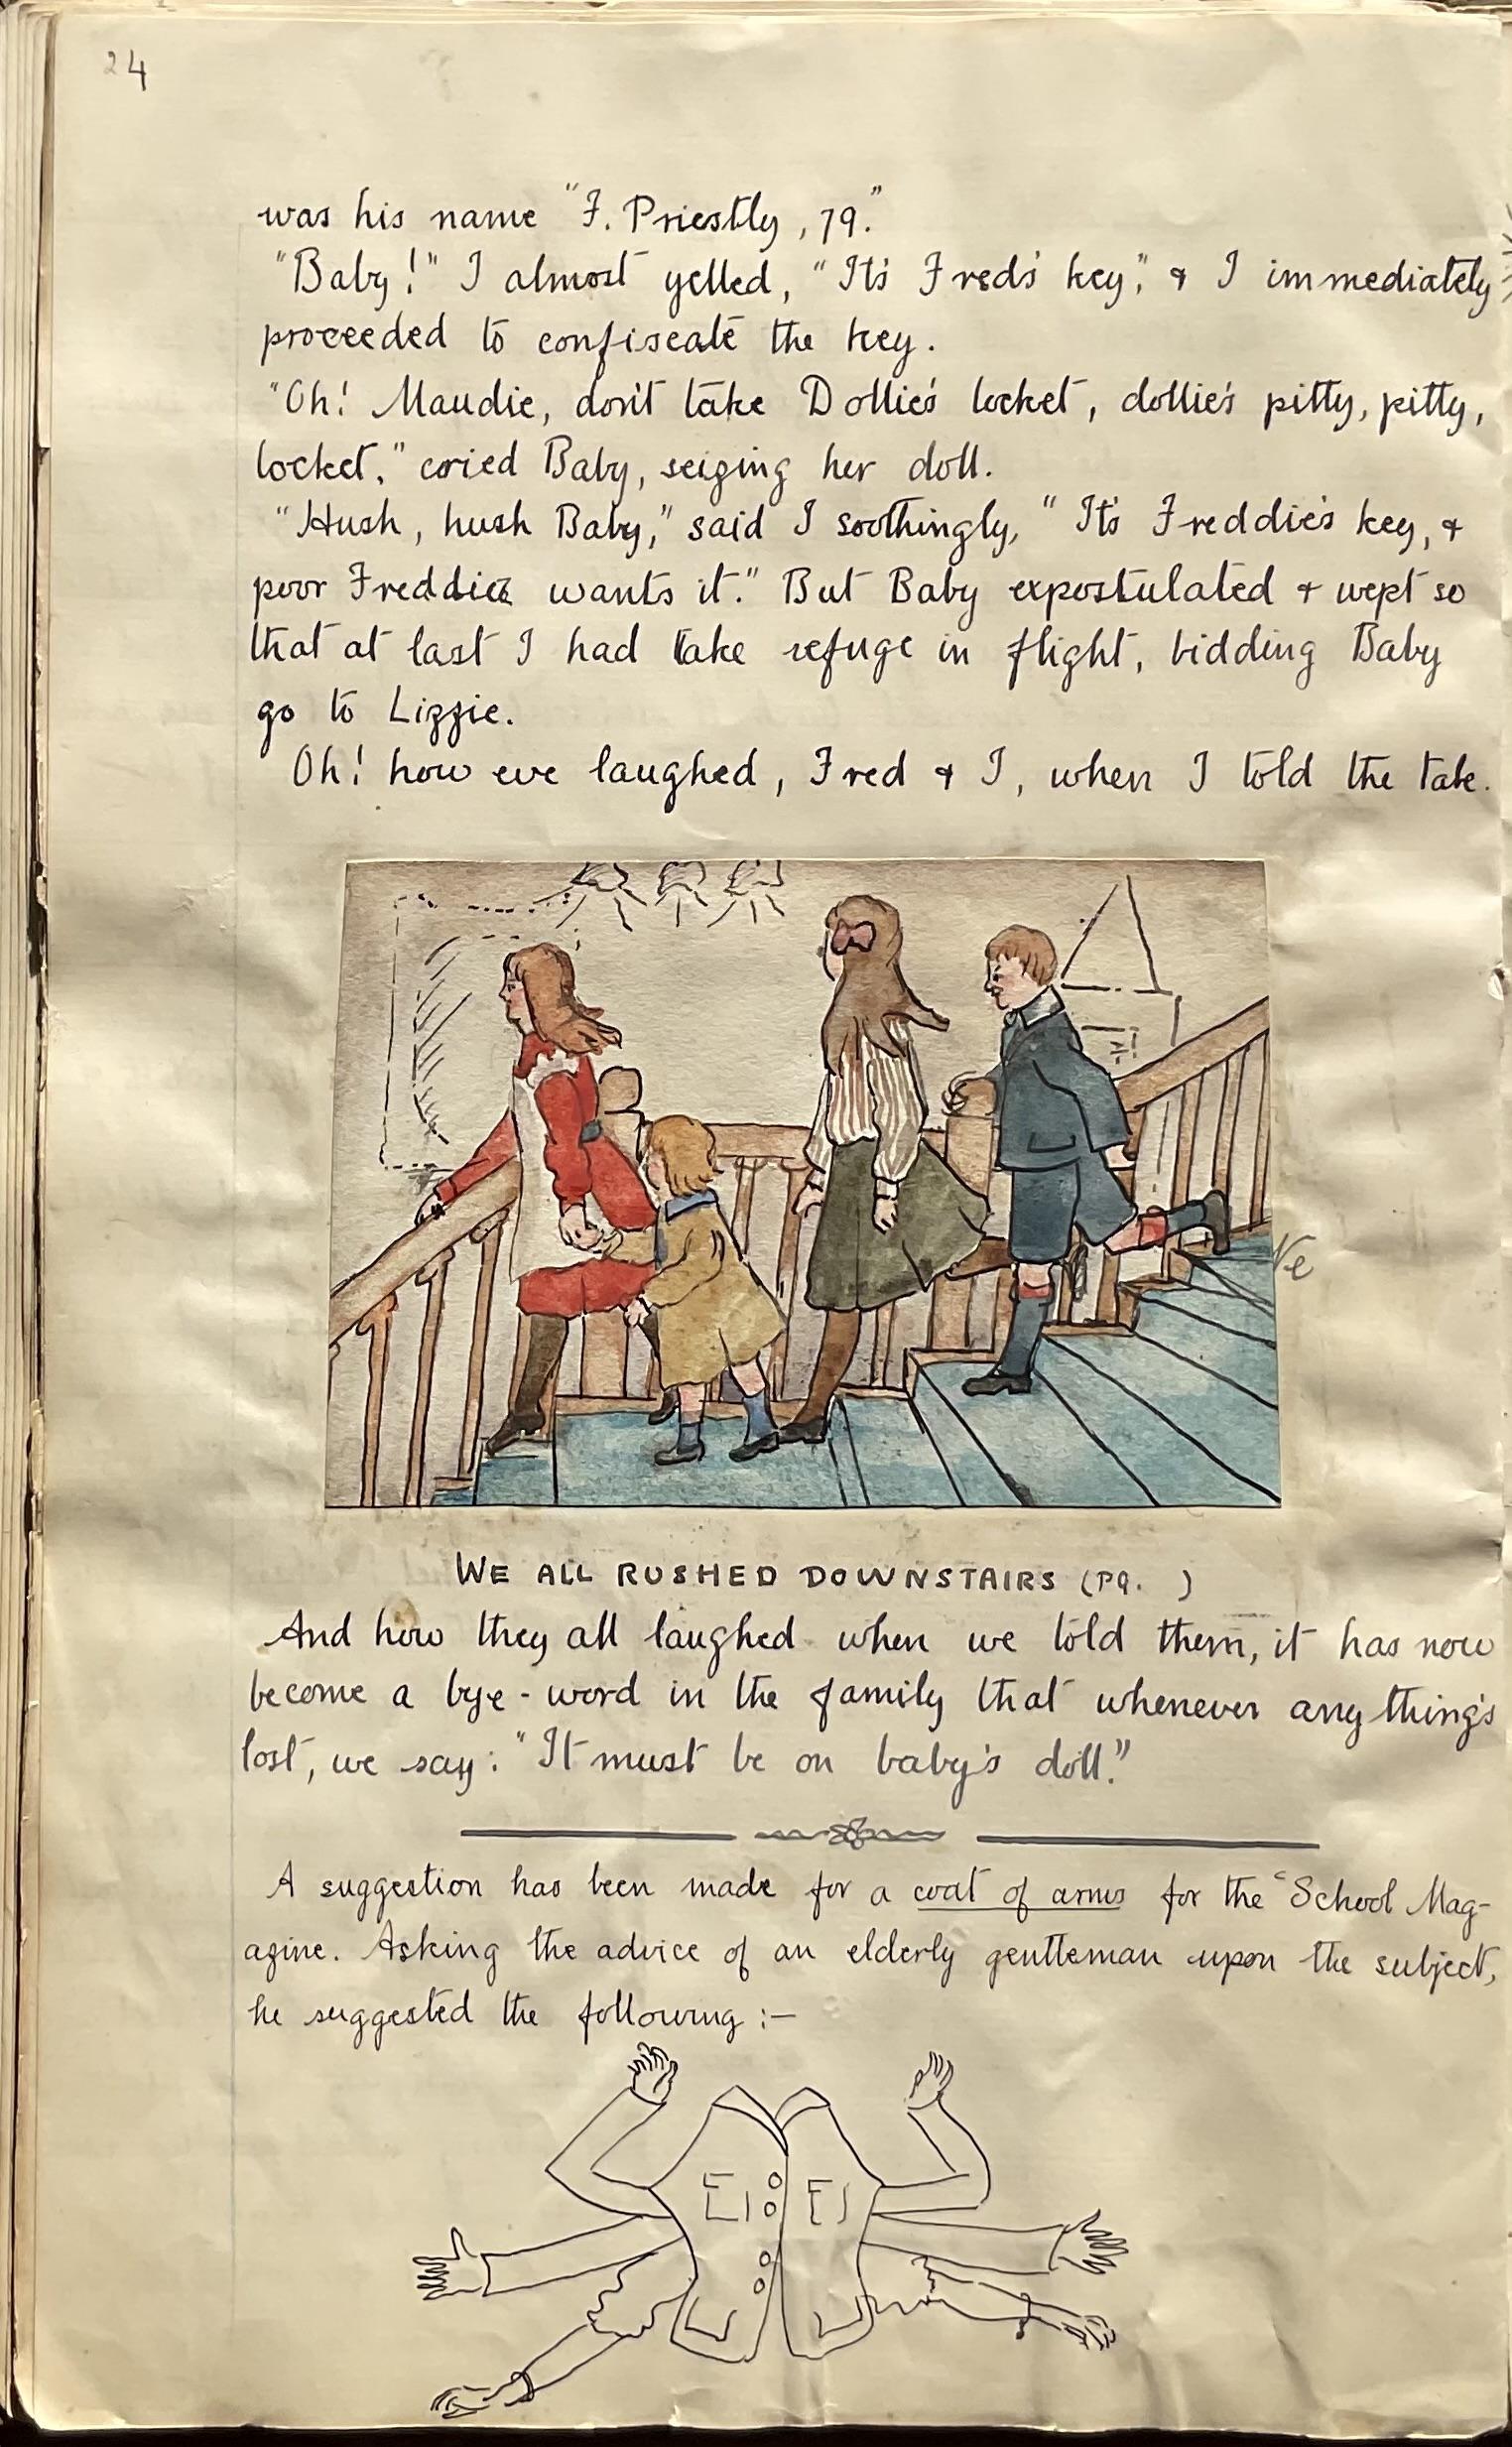 24
was his name "F. Priestly, 79."
"Baby!" I almost yelled, "It's Fred's key", & I immediately
proceeded to confiscate the key.
"Oh! Maudie, don't take Dollie's locket, dollie's pitty, pitty,
locket," cried Baby, seizing her doll.
"Hush, hush Baby," said I soothingly, "It's Freddie's key, &
poor Freddie wants it." But Baby expostulated & wept so
that at last I had take refuge in flight, bidding Baby
go to Lizzie.
Oh! how we laughed, Fred & I, when I told the tale.
WE ALL RUSHED DOWNSTAIRS (PG. )
And how they all laughed when we told them, it has now
become a bye-word in the family that whenever anything's
lost, we say: "It must be on baby's doll."
A suggestion has been made for a coat of arms for the "School Mag-
azine. Asking the advice of an elderly gentleman upon the subject,
he suggested the following :-